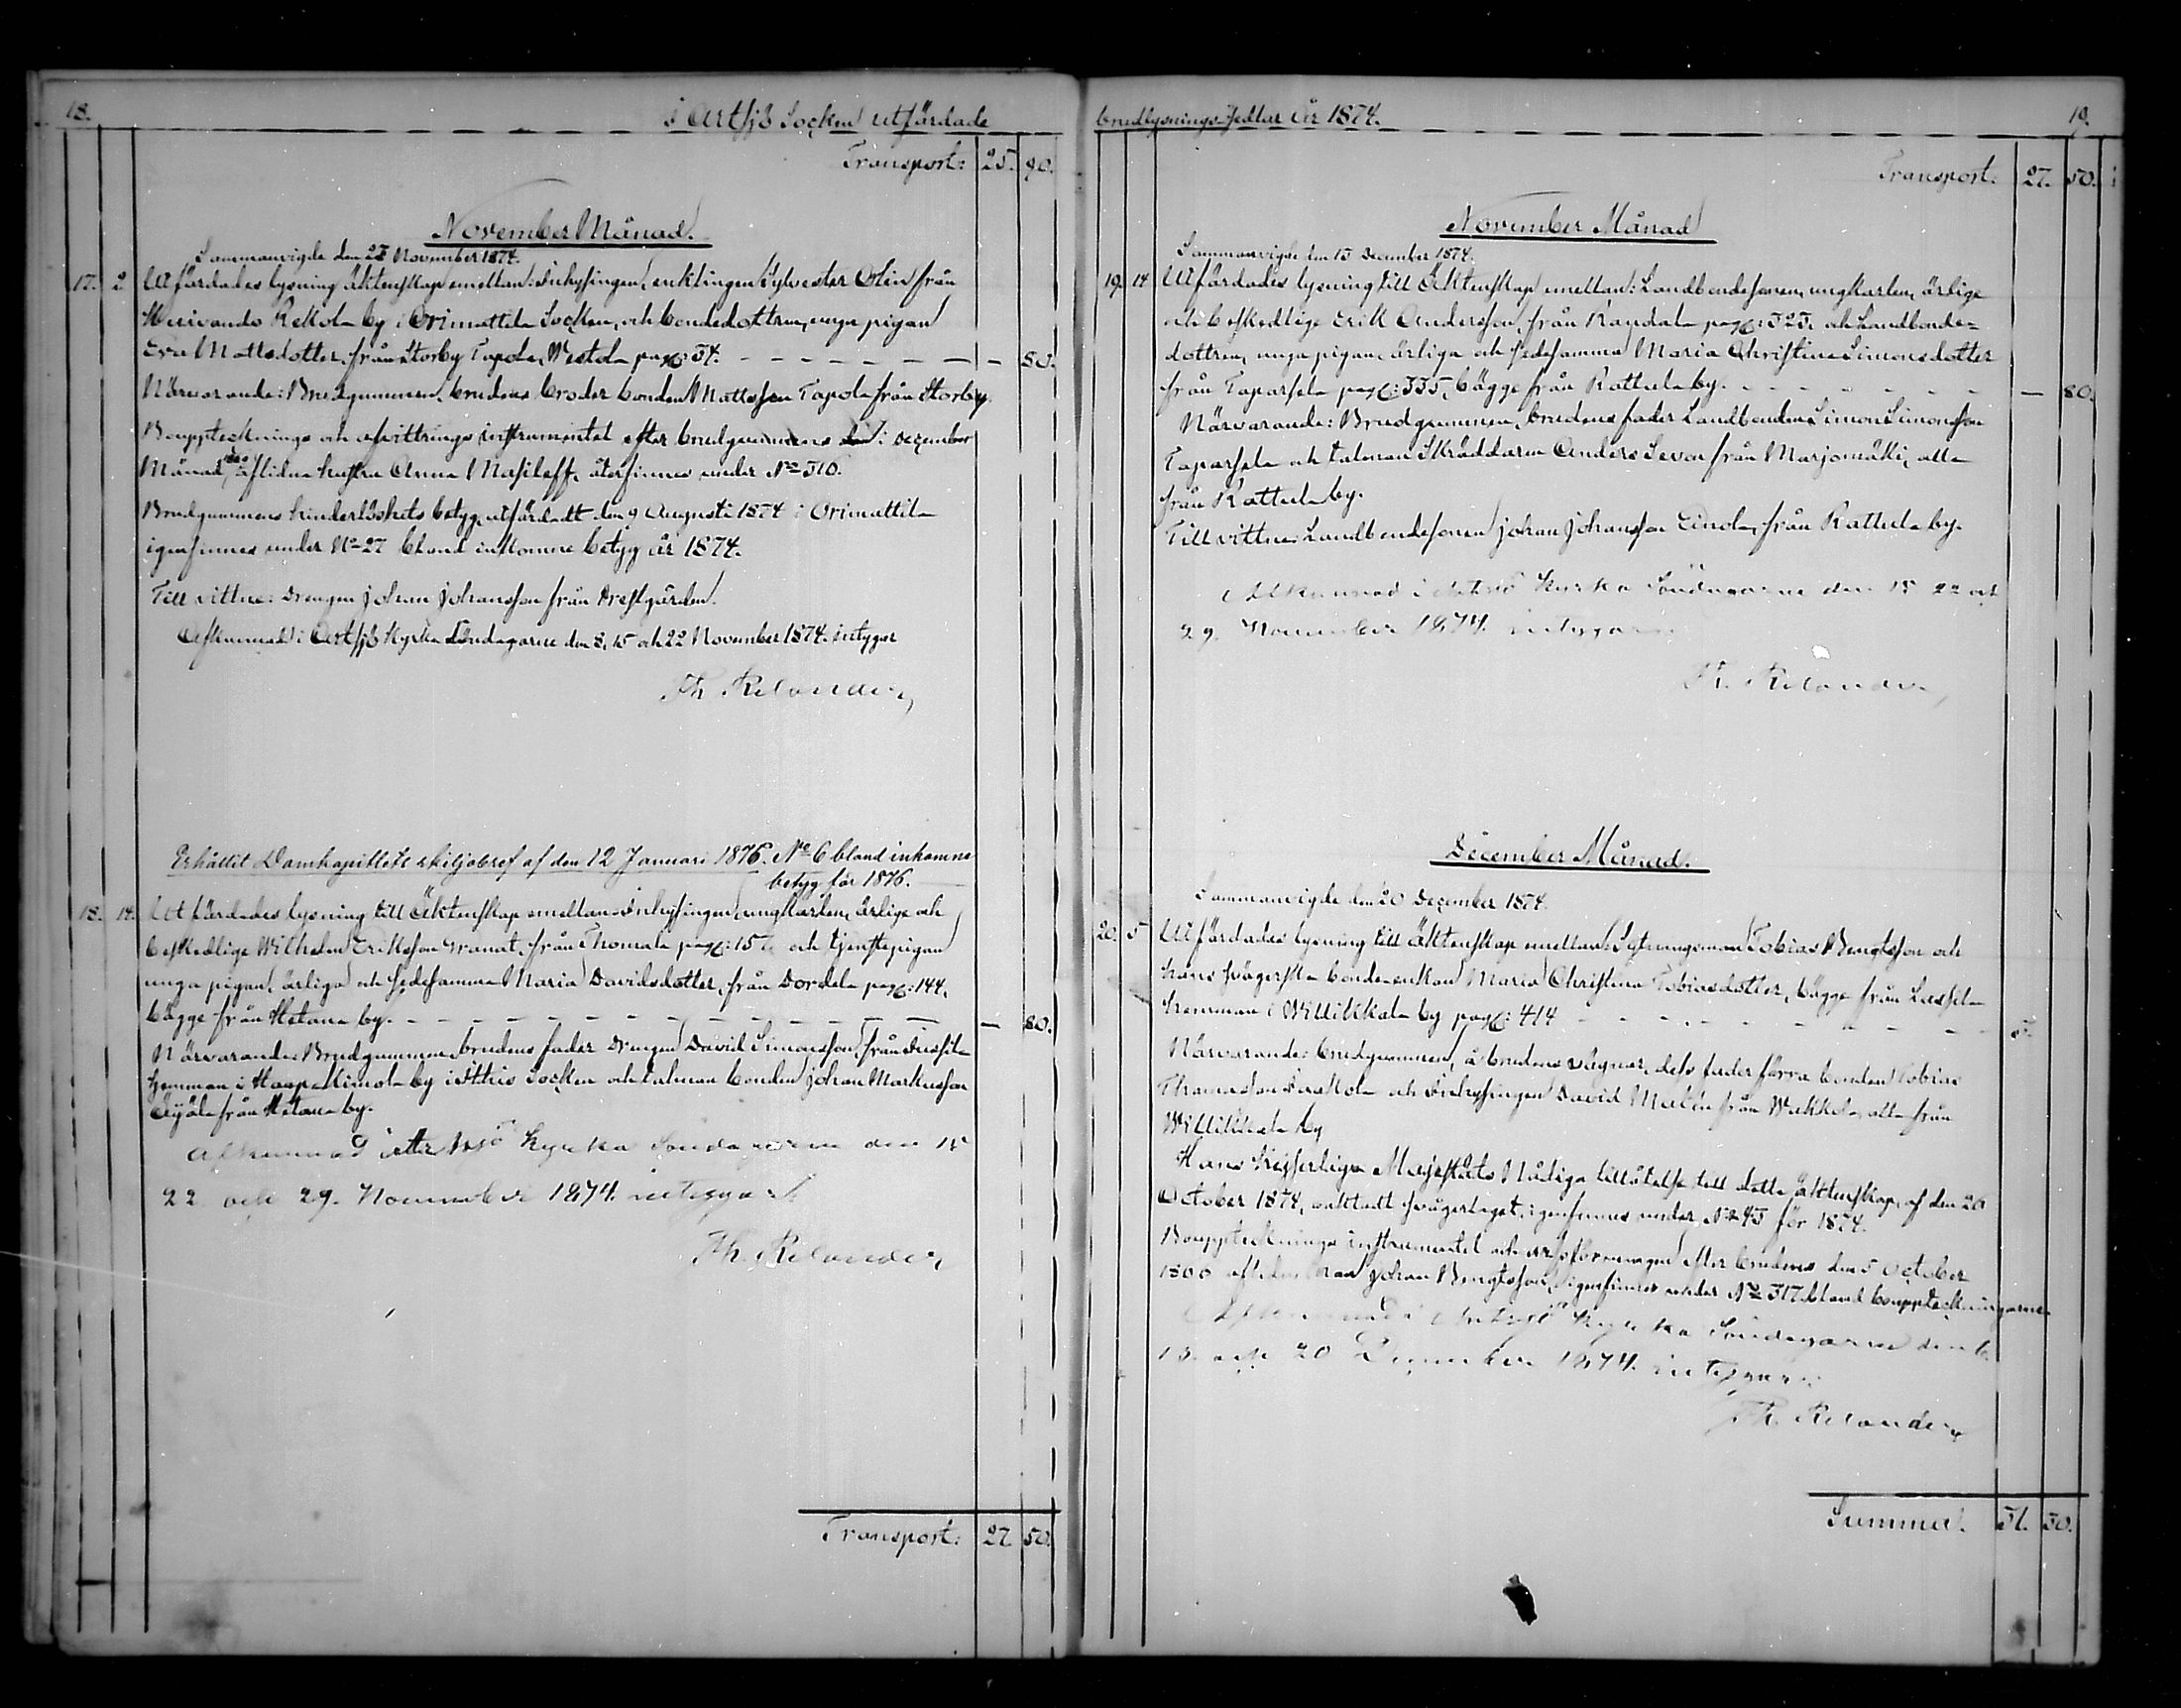 18.
i Artsjö Socken utfärdade
Transport: 25. 90.
November Månad.
Sammanvigde den 23 November 1874.
17. 2 Utfärdades lysning äktenskap emellan: Inhysingen, enklingen Sylvester Olin från
Rekola by i Orimattila Socken, och bondedottren, unga pigan
Eva Mattsdotter, från Storby Tapola, Westola pag: 34. — 80.
Närvarande: Brudgummen, brudens broder bonden Mattsson Tapola från Storby.
Bouppteckning och afvittrings instrumentet efter brudgummens i December
Månad aflidna hustru Anna Masiloff, återfinnes under No 310.
Brudgummens hinderlöshets betyg, utfärdadt den 9 Augusti 1874 i Orimattila
igenfinnes under No 27 bland inkomne betyg år 1874.
Till vittne: Drengen Johan Johansson från Prestgården.
Afkunnad i Artsjö Kyrka Söndagarne den 8, 15 och 22 November 1874. intygar
Th. Relander,
Erhållit Domkapitlets skiljobref af den 12 Januari 1876. No 6 bland inkomna
betyg för 1876.
18. 14. Utfärdades lysning till Äktenskap emellan Inhysingen, ungkarlen, ärlige och
beskedlige Wilhelm Eriksson Granat, från Thomala pag: 15 och tjenstepigan
unga pigan, ärliga och sedesamma Maria Davidsdotter, från Dordela pag: 144,
bägge från Hetana by. — 80.
Närvarande: Brudgummen, brudens fader Drengen David Simonsson från
hemman i Haapakimola by i Itthis Socken och talman bonden Johan Markusson
Äijälä från Hetana by.
Afkunnad i Artsjö Kyrka Söndagarne den 15
22 och 29. November 1874. intygar
Th. Relander,
Transport: 27. 50.
brudlysnings-sedlar År 1874.
19.
Transport: 27. 50.
November Månad
Sammanvigde den 13 December 1874.
19. 14 Utfärdades lysning till Äktenskap emellan: Landbondesonen, ungkarlen, ärlige
och beskedlige Erik Andersson, från pag: 323, och Landbonde=
dottren, unga pigan, ärliga och sedesamma Maria Christina Simonsdotter
från Taparsela pag: 335, bägge från Rattula by. — 80.
Närvarande: Brudgummen, brudens fader Landbonden Simon Simonsson
Taparsela och talman Skräddaren Anders Sevon från Marjomäki, alla
från Rattula by.
Till vittne: Landbondesonen Johan Johansson Einola, från Rattula by.
Afkunnad i Artsjö Kyrka Söndagarne den 15 22 och
29. November 1874. intygar
Th. Relander,
December Månad.
Sammanvigde den 20 December 1874.
20. 5 Utfärdades lysning till Äktenskap emellan: Sytningsman Tobias Bengtsson och
hans svägerska bondeenkan Maria Christina Tobiasdotter, bägge från
hemman i Willikkala by pag: 414 3.
Närvarande: brudgummen, å brudens vägnar, dess fader förra bonden Tobias
Thomasson och Inhysingen David Malén från Wakkola, alla från
Willikkala by
Hans Kejserliga Majestäts Nådiga tillåtelse till detta äktenskap, af den 26
October 1874, oaktadt svågerlaget, igenfinnes under No 43 för 1874.
Bouppteckningsinstrumentet och arfsföreningen efter brudens den 5 October
aflidne man Johan Bengtsson, igenfinnes under No 317 bland bouppteckningarne
Afkunnad i Artsjö Kyrka Söndagarne den 6.
13. och 20 December 1874. intygar
Th. Relander,
Summa. 31. 30.